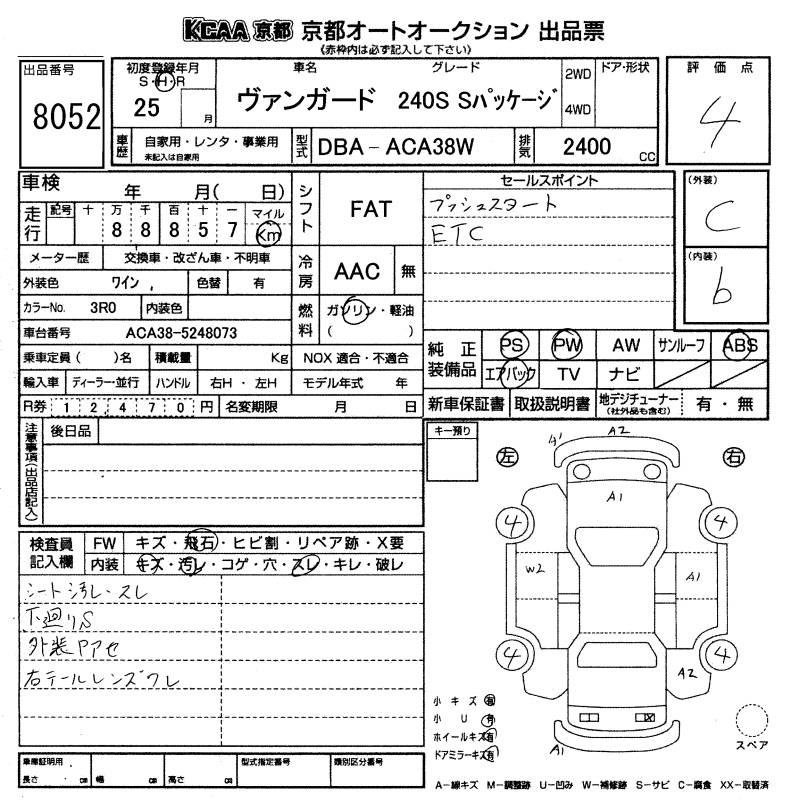 KCAA 京都 京都オートオークション 出品票
《赤枠内は必ず記入して下さい》
出品番号
8052
初度登録年月
S・H・R
25
月
車名
グレード
ヴァンガード 240S Sパッケージ
2WD
4WD
ドア・形状
評価点
4
車歴
自家用・レンタ・事業用
未記入は自家用
型式
DBA-ACA38W
排気
2400
CC
車検
年 月( 日)
走行
記号 十 万 千 百 十 一 マイル
8 8 8 5 7 Km
メーター歴 交換車・改ざん車・不明車
外装色 ワイン 色替 有
カラーNo. 3R0 内装色
車台番号 ACA38-5248073
乗車定員( )名 積載量 Kg
輸入車 ディーラー・並行 ハンドル 右H・左H
R券 12,470円 名変期限 月 日
シフト
FAT
冷房
AAC
無
燃料
ガソリン・軽油
( )
NOX 適合・不適合
モデル年式 年
セールスポイント
プッシュスタート
ETC
(外装)
C
(内装)
b
純正装備品
PS PW AW サンルーフ ABS
エアバック TV ナビ
新車保証書 取扱説明書 地デジチューナー(社外品も含む) 有・無
注意事項(出品店記入)
後日品
キー預り
左
右
A1
A2
A1
4
4
W2
A1
4
4
A2
A1
検査員記入欄
FW キズ・飛石・ヒビ割・リペア跡・X要
内装 キズ・汚レ・コゲ・穴・スレ・キレ・破レ
シート汚レ・スレ
下廻りS
外装Pアセ
右テールレンズワレ
小キズ 有
小U 有
ホイールキズ 有
ドアミラーキズ 有
スペア
車庫証明用
長さ cm 幅 cm 高さ cm
型式指定番号
類別区分番号
A-線キズ M-調整跡 U-凹み W-補修跡 S-サビ C-腐食 XX-取替済